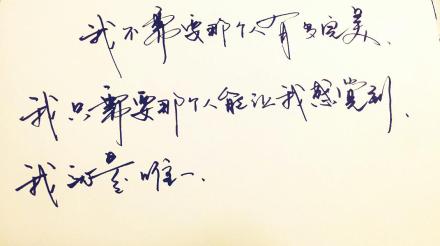 我不需要那个人有多完美、
我只需要那个人能让我感觉到、
我是唯一.